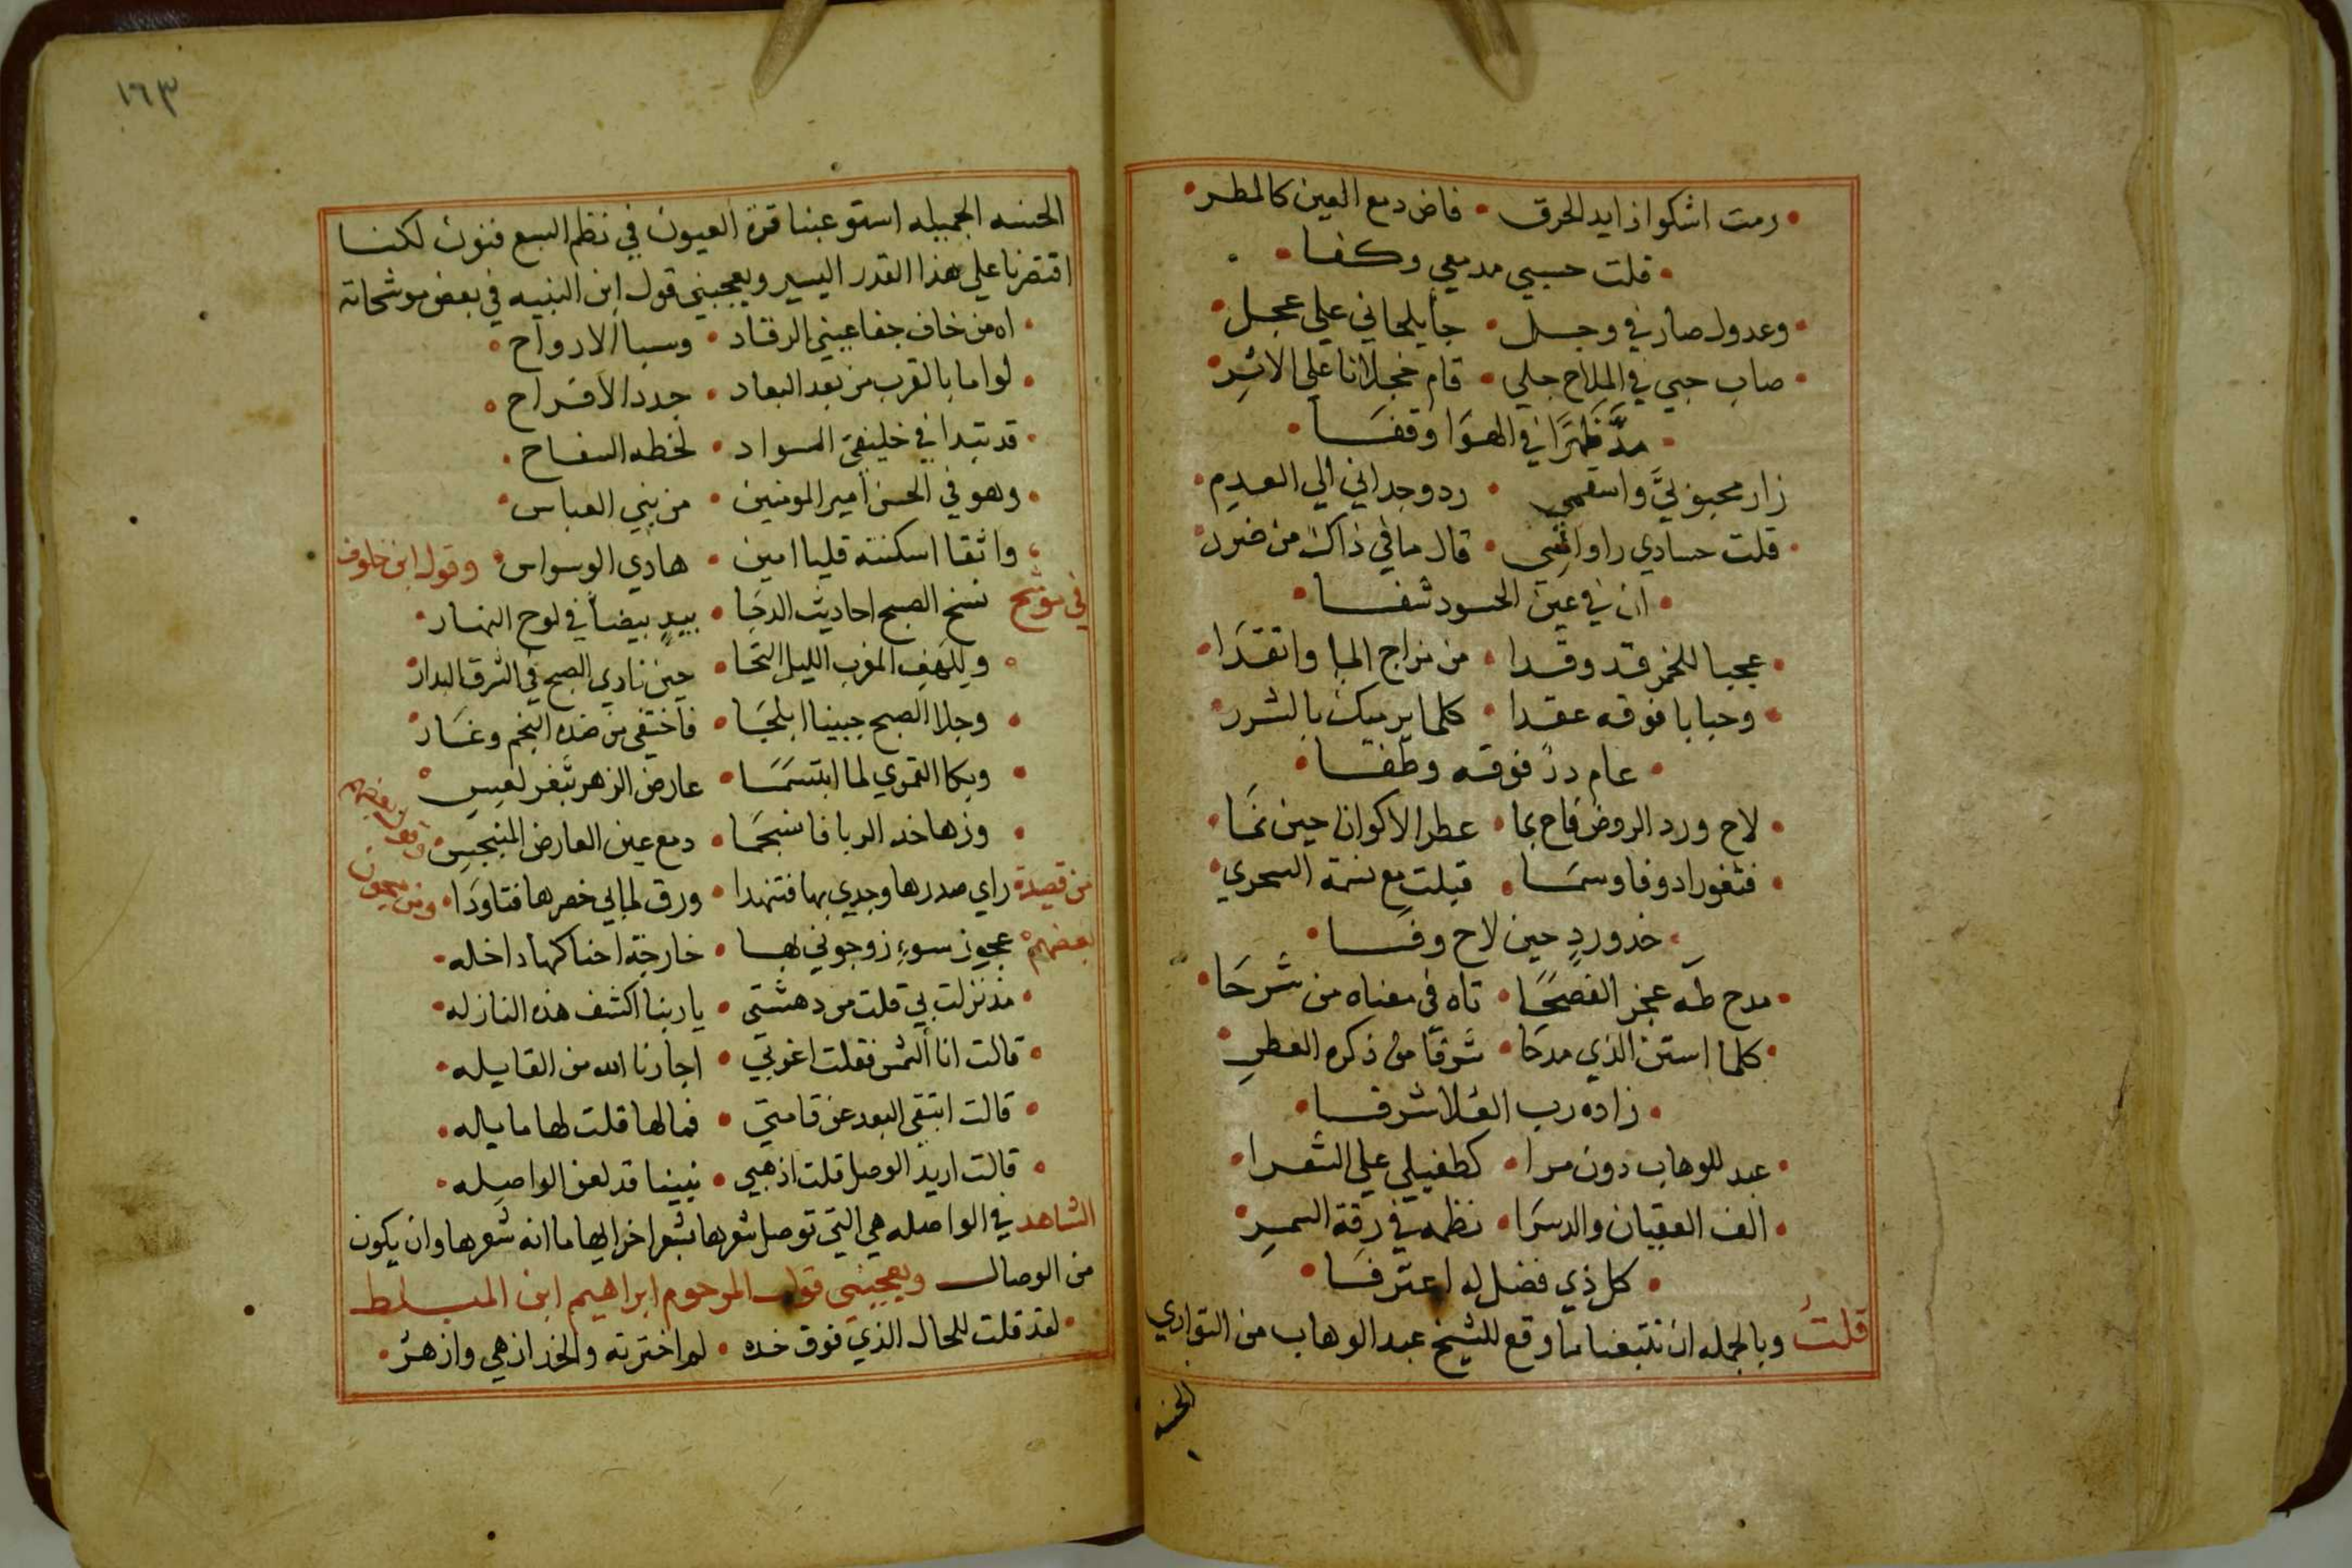 رمت اشكو اذ ايد الحرق • فاض دمع العين كالمطر
قلت حسبي مدمعي وكفا
وعدول صار في وجل • جا يلحاني علي عجل
صاب حبي في الملاح جلي • قام خجلانا علي الاثر
مدَّ ظهرًا في الهوا وقفا
زار محبوبيَّ واسقمي • رد وجداني الي العدم
قلت حسادي راوا • قال ما في ذاك من ضرر
ان في عين الحسود شفا
عجبا للخمر قد وقدا • من مزاج الما واتقدا
وحبابا فوقه عقدا • كلما يرميك بالشرر
عام درٌ فوقه وطفا
لاح ورد الروض فاح بما • عطر الاكوان حين نما
فثغورا دوفا وسما • قبلت مع نسمة السحري
خد وردٍ حين لاح وفا
مدح طه عجز الفصحا • تاه في معناه من شرحا
كلما استن الذي مدحا • شرقا من ذكره العطر
زاده رب العلا شرفا
عبد للوهاب دون مرا • كطفيلي علي الشعرا
الف العقيان والدررا • نظمه في رقة السمر
كل ذي فضل له اعترفا
قلت وبالجمله ان تتبعنا ما وقع للشيخ عبد الوهاب من التواري
الحسنه
١٦٣
الحسنه الجميله استوعبنا قرة العيون في نظم السبع فنون لكننا
اقتصرنا علي هذا القدر اليسير ويعجبني قول ابن النبيه في بعض موشحاته
اه من خاف جفا عيني الرقاد • وسبا الارواح
لو اما بالقرب من بعد البعاد • جدد الافراح
قد تبدا في خليفتي السواد • لحظه السفاح
وهو في الحسن امير المومنين • من بني العباس
واثقا اسكنته قلبا امين • هادي الوسواس • وقول ابن خلوف
في موشح نسخ الصبح احاديث الدجا • بيدٍ بيضا في لوح النهار
وللهف المغرب الليل التجا • حين نادي الصبح في الشرق البدار
وجلا الصبح جبينا ابلجا • فاختفي من ضده النجم وغار
وبكا القمري لما ابتسما • عارض الزهر بثغر لعس
وزها خد الربا فانسجما • دمع عين العارض المنبجس وقول بعضهم
من قصيدة راي صدرها وجدي بها فتنهدا • ورق لما بي خصرها فتاودا • ومن مجون
بعضهم عجوز سوء زوجوني بها • خارجة احناكها داخله
مذ نزلت بي قلت من دهشتي • يا ربنا اكشف هذه النازله
قالت انا الشمس فقلت اغربي • اجارنا الله من القايله
قالت ابتقي البعد عن قامتي • فمالها قلت لها مايله
قالت اريد الوصل قلت اذهبي • نبينا قد لعن الواصله
الشاهد في الواصله هي التي توصل شعرها بشعر اخر ايهاما انه شعرها وان يكون
من الوصال ويعجبني قول المرحوم ابراهيم ابن المبلط
لقد قلت للخال الذي فوق خده • لم اخترته والخد ازهي وازهر